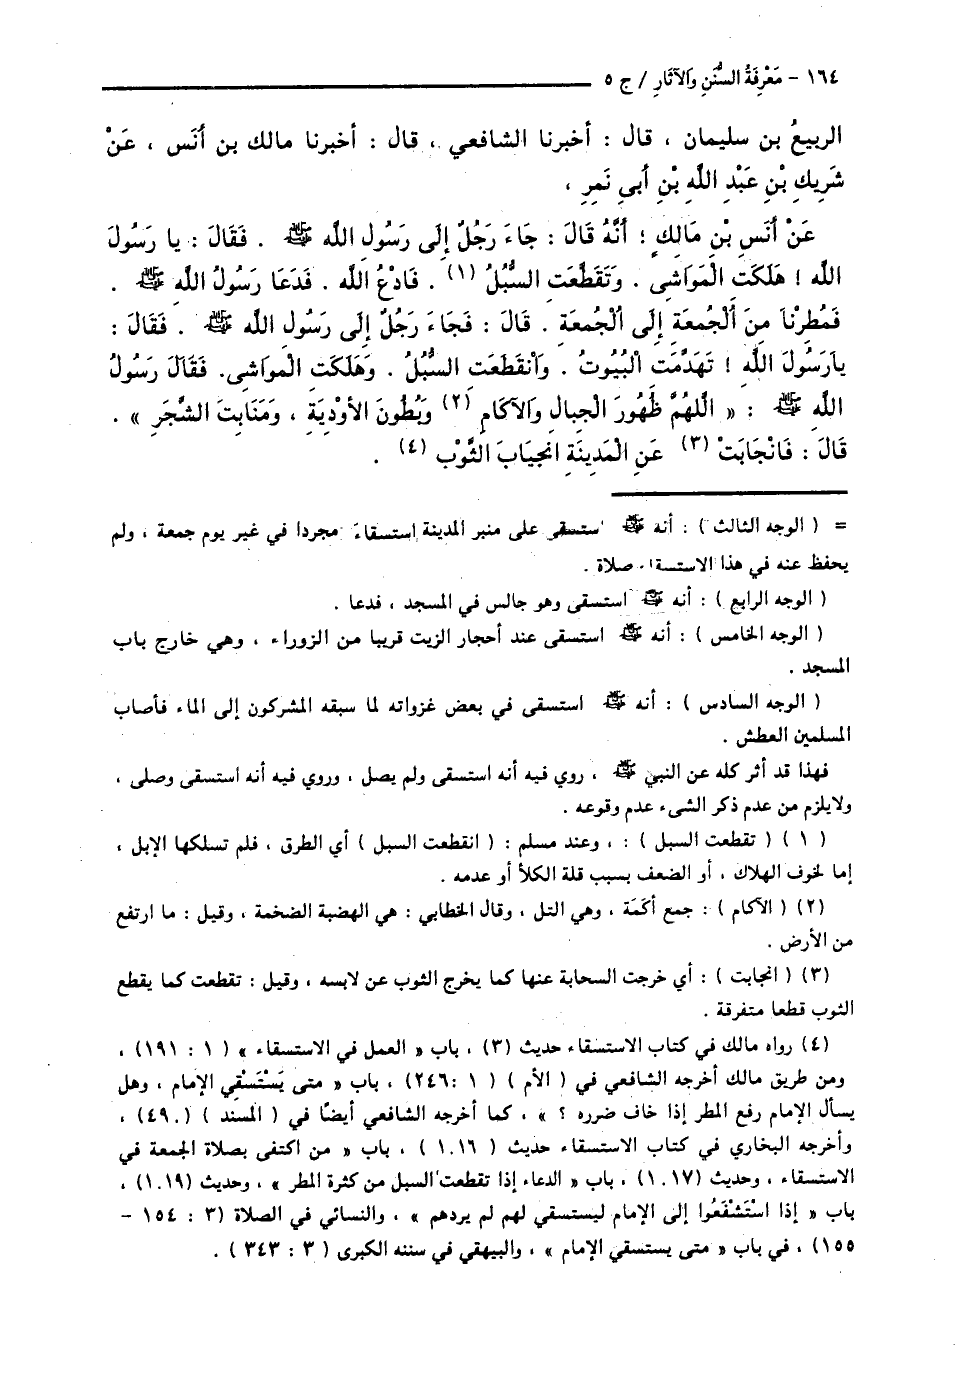 ١٦٤ - مَعْرِفَةُ السُّنَنِ وَالآثَارِ / ج ٥
الربيعُ بن سليمان ، قال : أخبرنا الشافعي ، قال : أخبرنا مالك بن أنَس ، عَنْ
شَرِيكِ بْنِ عَبْدِ اللَّهِ بْنِ أَبِي نَمِرٍ ،
عَنْ أَنَسِ بْنِ مَالِكٍ ؛ أَنَّهُ قَالَ : جَاءَ رَجُلٌ إِلَى رَسُولِ اللَّهِ ﷺ . فَقَالَ : يا رَسُولَ
اللَّه ! هَلَكَتِ الْمَوَاشِى . وَتَقَطَّعَتِ السُّبُلُ (١) . فَادْعُ اللَّه . فَدَعَا رَسُولُ اللَّهِ ﷺ .
فَمُطِرْنَا مِنَ الْجُمعَةِ إِلَى الْجُمعَةِ . قَالَ : فَجَاءَ رَجُلٌ إِلَى رَسُولِ اللَّهِ ﷺ . فَقَالَ :
يارَسُولَ اللَّهِ ! تَهَدَّمَتِ الْبُيُوتُ . وَانْقَطَعَتِ السُّبُلُ . وَهَلَكَتِ الْمَوَاشِى. فَقَالَ رَسُولُ
اللَّهِ ﷺ : « اللَّهُمَّ ظُهُورَ الْجِبَالِ وَالآكَامِ (٢) وَبُطُونَ الأَوْدِيَةِ ، وَمَنَابِتَ الشَّجَرِ » .
قَالَ : فَانْجَابَتْ (٣) عَنِ الْمَدِينَةِ انْجِيَابَ الثَّوْبِ (٤) .
= ( الوجه الثالث ) : أنه ﷺ استسقى على منبر المدينة استسقاءً مجردا في غير يوم جمعة ، ولم
يحفظ عنه في هذا الاستسقاء صلاة .
( الوجه الرابع ) : أنه ﷺ استسقى وهو جالس في المسجد ، فدعا .
( الوجه الخامس ) : أنه ﷺ استسقى عند أحجار الزيت قريبا من الزوراء ، وهي خارج باب
المسجد .
( الوجه السادس ) : أنه ﷺ استسقى في بعض غزواته لما سبقه المشركون إلى الماء فأصاب
المسلمين العطش .
فهذا قد أثر كله عن النبي ﷺ ، روي فيه أنه استسقى ولم يصل ، وروي فيه أنه استسقى وصلى ،
ولايلزم من عدم ذكر الشىء عدم وقوعه .
( ١ ) ( تقطعت السبل ) : ، وعند مسلم : ( انقطعت السبل ) أي الطرق ، فلم تسلكها الإبل ،
إما لخوف الهلاك ، أو الضعف بسبب قلة الكلأ أو عدمه .
(٢) ( الآكام ) : جمع أكَمَة ، وهي التل ، وقال الخطابي : هي الهضبة الضخمة ، وقيل : ما ارتفع
من الأرض .
(٣) ( انجابت ) : أي خرجت السحابة عنها كما يخرج الثوب عن لابسه ، وقيل : تقطعت كما يقطع
الثوب قطعا متفرقة .
(٤) رواه مالك في كتاب الاستسقاء حديث (٣) ، باب « العمل في الاستسقاء » ( ١ : ١٩١) ،
ومن طريق مالك أخرجه الشافعي في ( الأم ) ( ١ :٢٤٦) ، باب « متى يَسْتَسْقِي الإمام ، وهل
يسأل الإمام رفع المطر إذا خاف ضرره ؟ » ، كما أخرجه الشافعي أيضًا في ( المسند ) (٤٩٠) ،
وأخرجه البخاري في كتاب الاستسقاء حديث ( ١٠١٦ ) ، باب « من اكتفى بصلاة الجمعة في
الاستسقاء ، وحديث (١٠١٧) ، باب « الدعاء إذا تقطعت السبل من كثرة المطر » ، وحديث (١٠١٩) ،
باب « إذا اسْتَشْفَعُوا إلى الإمام ليستسقي لهم لم يردهم » ، والنسائي في الصلاة (٣ : ١٥٤ -
١٥٥) ، في باب « متى يستسقي الإمام » ، والبيهقي في سننه الكبرى ( ٣ : ٣٤٣ ) .